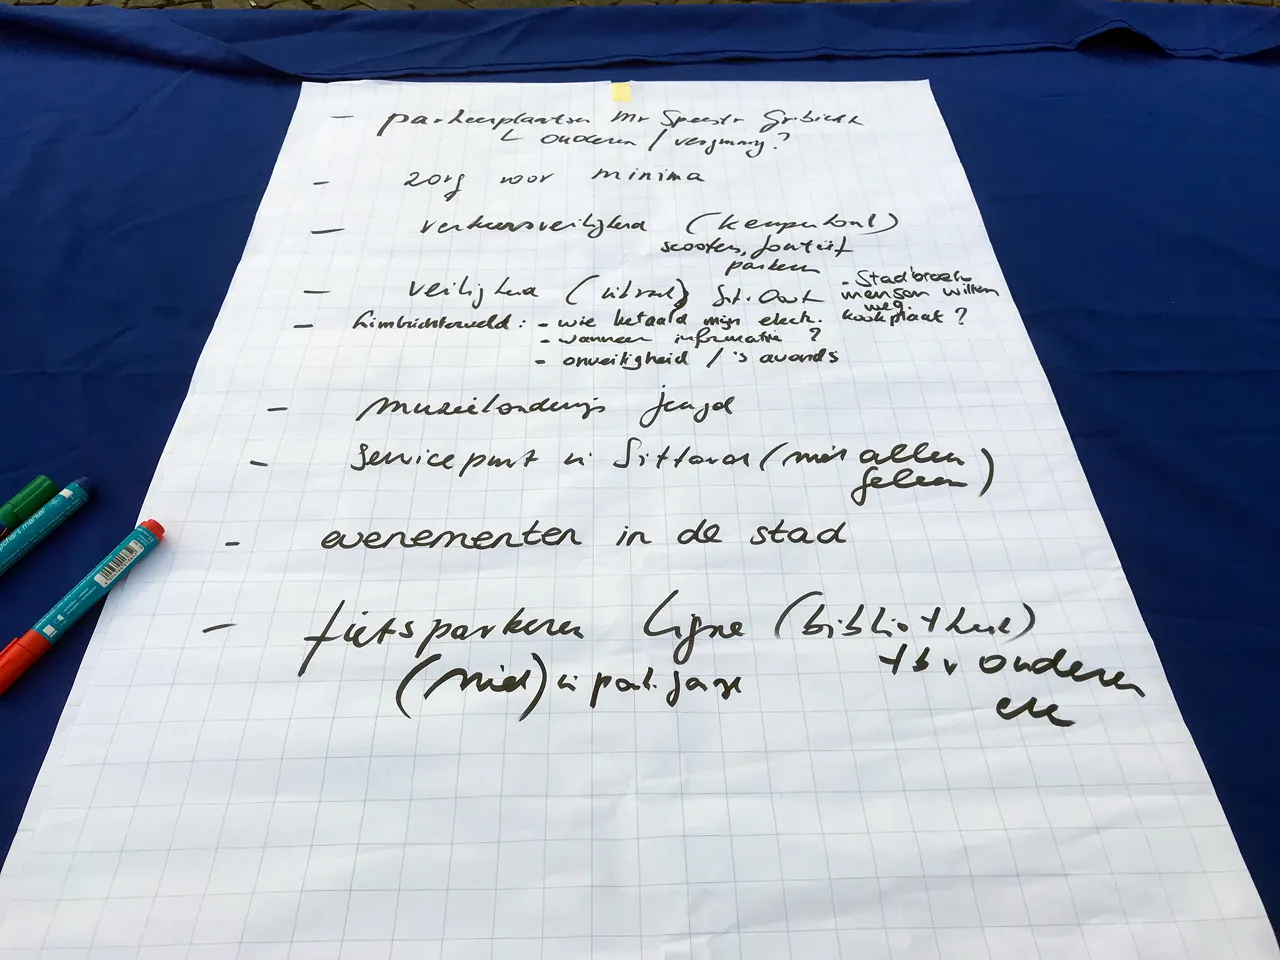 - parkeerplaatsen Mr
L ouderen / vergunning?
- zorg voor minima
- verkeersveiligheid (Kemperkoul)
scooters, foutief
parkeren
- veiligheid ( ) Sit. Oost
- Stadbroek
mensen willen
weg.
- Limbrichterveld: - wie betaald mijn elect. kookplaat?
- wanneer informatie?
- onveiligheid / 's avonds
- muziekonderwijs jeugd
- servicepunt in Sittard (niet alleen
Geleen)
- evenementen in de stad
- fietsparkeren Ligne (bibliotheek)
(niet) in park. garage
tbv ouderen
etc
flipchart marker